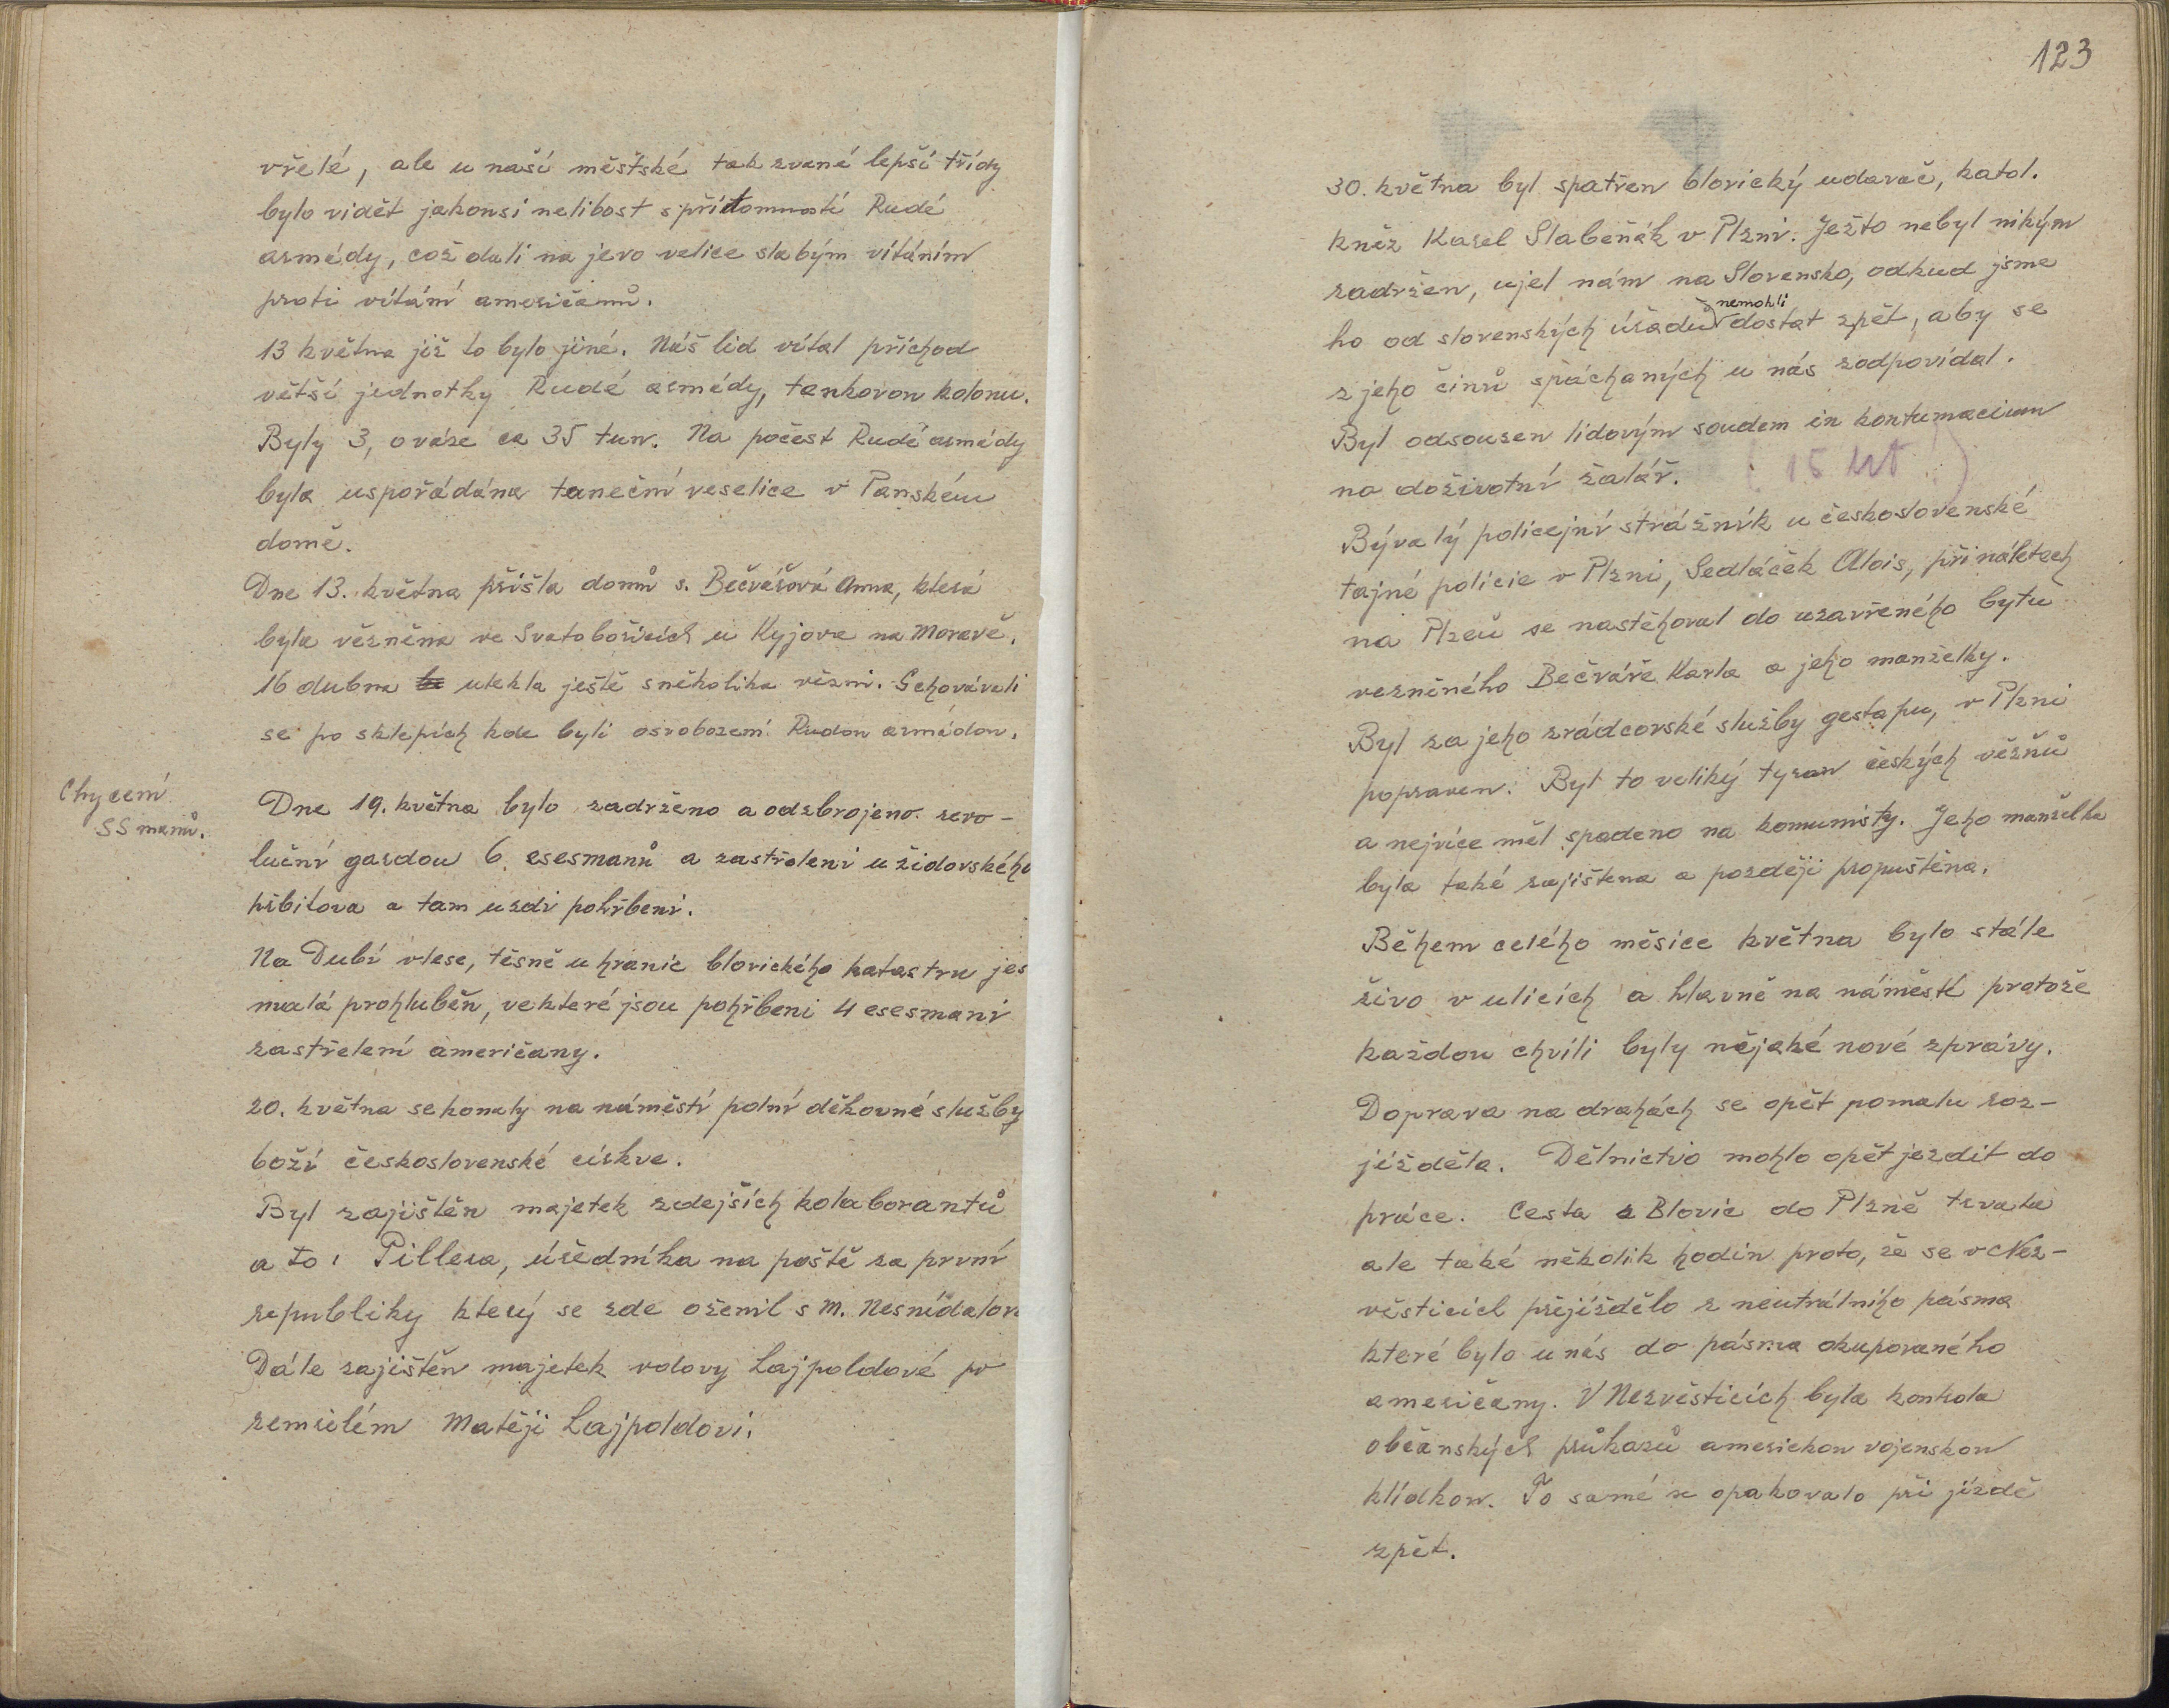 vřelé, ale u naší městské tak zvané lepší třídy
bylo vidět jakousi nelibost s přítomností Rudé
armády, což dali na jevo velice slabým vítáním
proti vítání američanů.
13 května již to bylo jiné. Náš lid vítal příchod
větší jednotky Rudé armády, tankovou kolonu.
Byly 3, o váze ca 35 tun. Na počest Rudé armády
byla uspořádána taneční veselice v Panském
domě.
Dne 13. května přišla domů s. Bečvářová Anna, která
byla vězněna ve Svatobořicích u Kyjova na Moravě.
16 dubna utekla ještě s několika vězni. Schovávali
se po sklepích kde byli osvobozeni Rudou armádou.
Chycení
SS manů.
Dne 19. května bylo zadrženo a odzbrojeno revo-
luční gardou 6. esesmanů a zastřeleni u židovského
hřbitova a tam u zdi pohřbeni.
Na Dubí v lese, těsně u hranic blovického katastru jes
malá prohluběň, ve které jsou pohřbeni 4 esesmani
zastřelení američany.
20. května se konaly na náměstí polní děkovné služby
boží československé církve.
Byl zajištěn majetek zdejších kolaborantů
a to: Pillera, úředníka na poště za první
republiky který se zde oženil s M. Nesnídalov
Dále zajištěn majetek vdovy Lajpoldové po
zemřelém Matěji Lajpoldovi.
123
30. května byl spatřen blovický udavač, katol.
kněz Karel Slabeňák v Plzni. Ježto nebyl nikým
zadržen, ujel nám na Slovensko, odkud jsme
ho od slovenských úřadů nemohli dostat zpět, aby se
z jeho činů spáchaných u nás zodpovídal.
Byl odsouzen lidovým soudem in kontumacium
na doživotní žalář. (15 let)
Bývalý policejní strážník u československé
tajné policie v Plzni, Sedláček Alois, při náletech
na Plzeň se nastěhoval do uzavřeného bytu
vezněného Bečváře Karla a jeho manželky.
Byl za jeho zrádcovské služby gestapu, v Plzni
popraven. Byl to veliký tyran českých vězňů
a nejvíce měl spadeno na komunisty. Jeho manželka
byla také zajištena a později propuštěna.
Během celého měsíce května bylo stále
živo v ulicích a hlavně na náměstí protože
každou chvíli byly nějaké nové zprávy.
Doprava na drahách se opět pomalu roz-
jížděla. Dělnictvo mohlo opět jezdit do
práce. Cesta z Blovic do Plzně trvala
ale také několik hodin proto, že se v Nez-
věsticích přejíždělo z neutrálního pásma
které bylo u nás do pásma okupovaného
američany. V Nezvěsticích byla kontrola
občanských průkazů americkou vojenskou
hlídkou. To samé se opakovalo při jízdě
zpět.